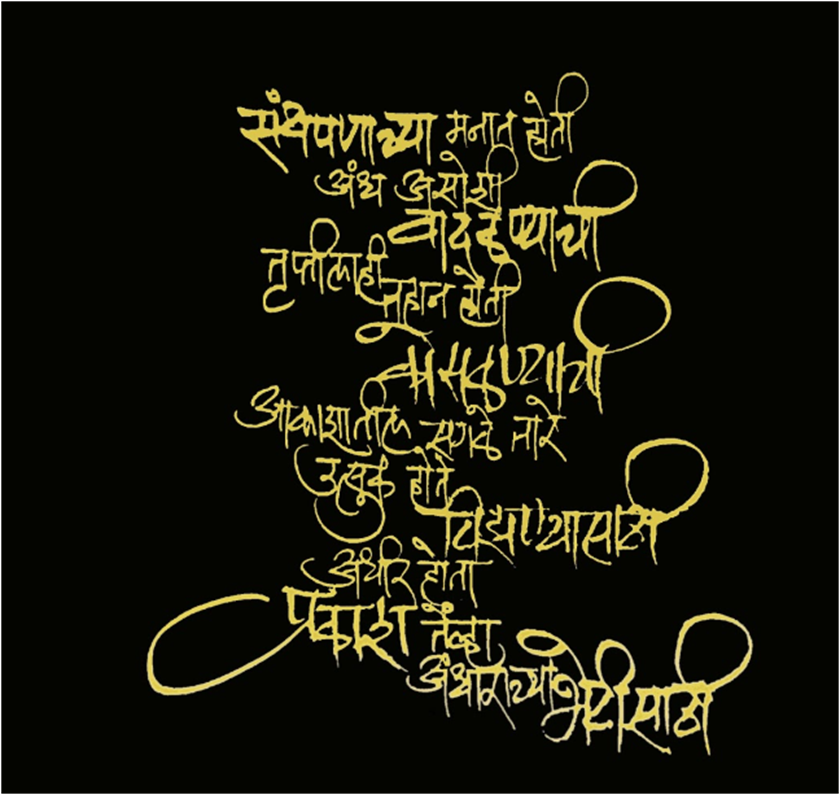 संथपणाच्या मनात होती
अंध असोशी
वादळण्याची
तृप्तीलाही
तहान होती
कोसळण्याची
आकाशातील सगळे तारे
उत्सुक होते
विझण्यासाठी
अधीर होता
प्रकाश तेंव्हा
अंधाराच्या भेटीसाठी